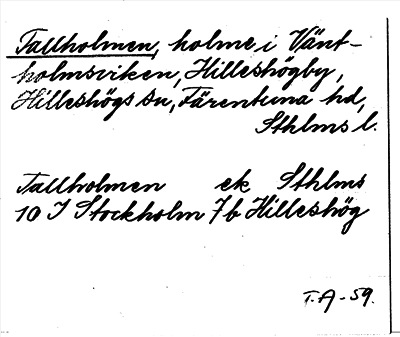 Tallholmen, holme i Vänt-
holmsviken, Hilleshögby,
Hilleshögs sn, Färentuna hd,
Sthlms l.
Tallholmen ek Sthlms
10 I Stockholm 7b Hilleshög
T.A-59.